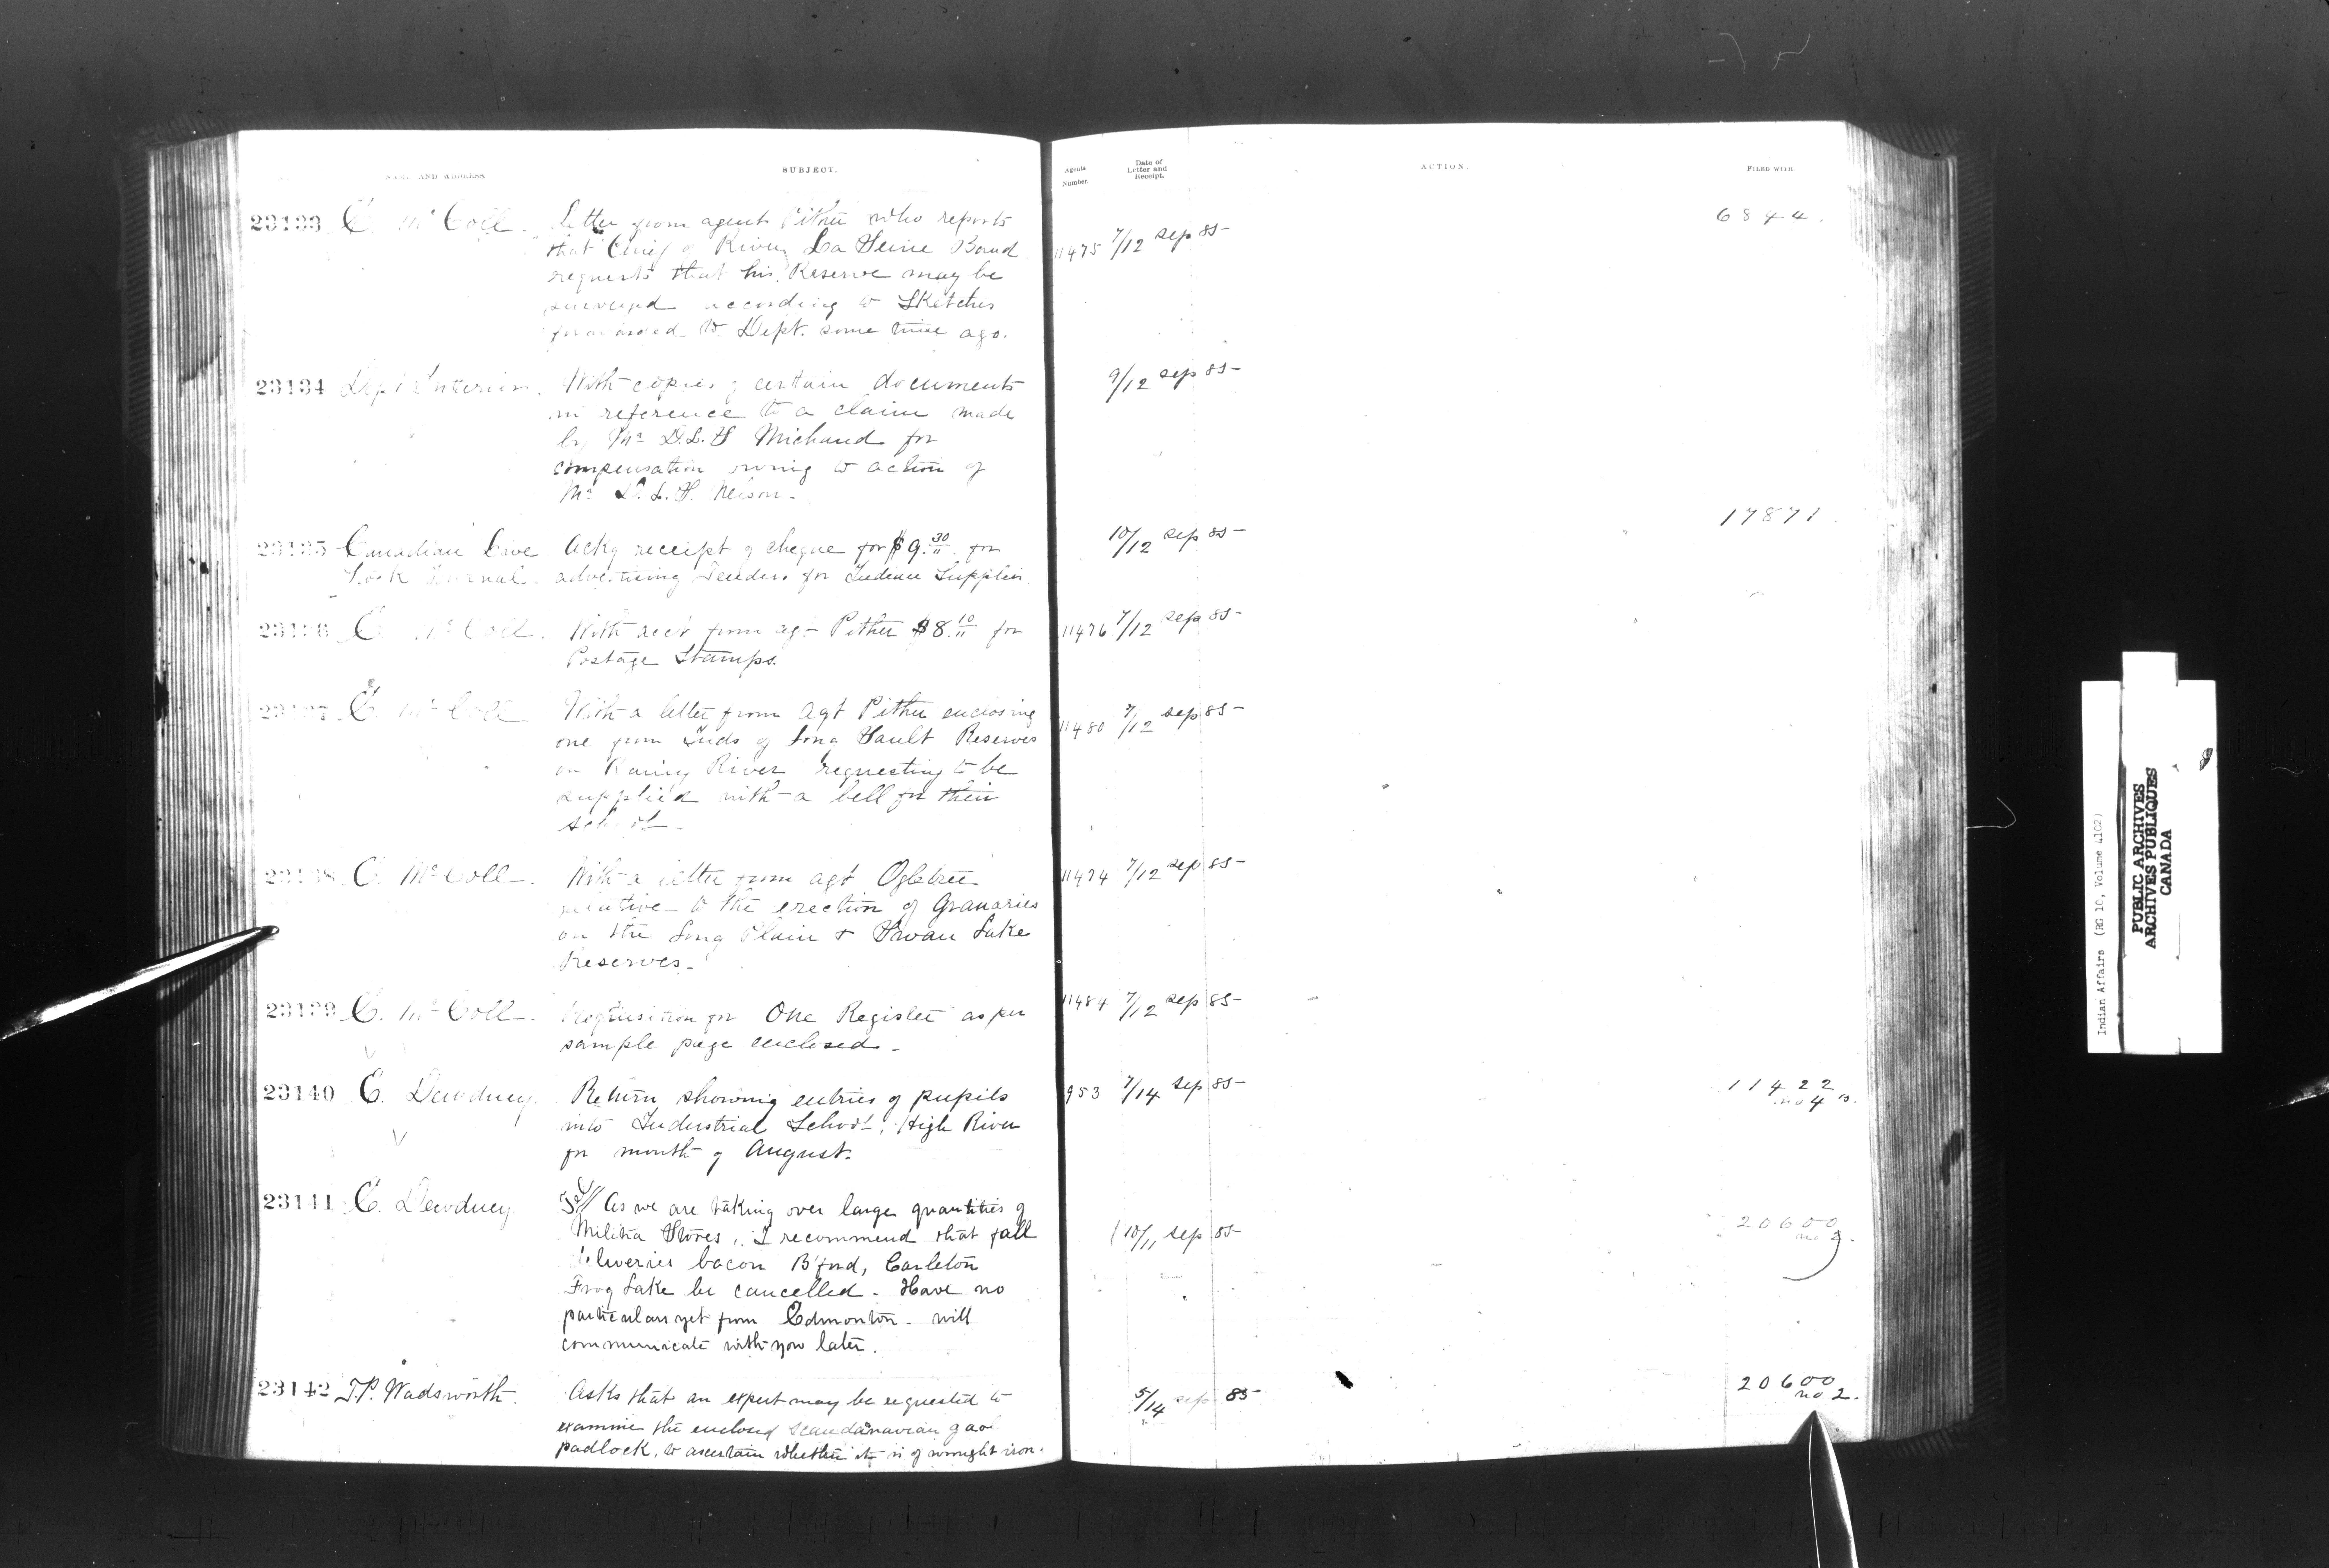 NAME AND ADDRESS.
SUBJECT.
Agents Number.
Date of Letter and Receipt.
ACTION.
FILED WITH
23133 E. McColl. Letter from agent Pither who reports
that Chief of River La Seine Band
requests that his Reserve may be
surveyed according to Sketches
forwarded to Dept. some time ago.
11475 7/12 Sep 85
6844.
23134 Dept Interior. With copies of certain documents
in reference to a claim made
by Mr D.L.S Michaud for
compensation owing to action of
Mr D.L.S. Nelson.
9/12 Sep 85
17871
23135 Canadian Live Ackg receipt of cheque for $9.30 for
Stock Journal. advertising Tenders for Indian Supplies
10/12 Sep 85
23136 E. McColl. With acct from agt Pither $8.10 for
Postage Stamps.
11476 7/12 Sep 85
23137 E. McColl With a letter from Agt Pither enclosing
one from Inds of Long Sault Reserves
on Rainy River requesting to be
supplied with a bell for their
school.
11480 7/12 Sep 85
23138 E. McColl. With a letter from agt Ogletree
relative to the erection of Granaries
on the Long Plain & Swan Lake
Reserves.
11474 7/12 Sep 85
23139 E. McColl. Requisition for One Register as per
sample page enclosed.
11484 7/12 Sep 85
23140 E. Dewdney Return showing entries of pupils
into Industrial School, High River
for month of August.
953 7/14 Sep 85
11422
no 4
23141 E. Dewdney As we are taking over large quantities of
Militia Stores, I recommend that fall
deliveries bacon B'ford, Carleton
Frog Lake be cancelled. Have no
particulars yet from Edmonton. will
communicate with you later.
10/11 Sep 85
20600
no 2.
23142 T.P. Wadsworth. Asks that an expert may be requested to
examine the enclosed Scandanavian gaol
padlock, to ascertain whether it is of wrought iron.
5/14 Sep 85
20600
no 2.
Indian Affairs (RG 10, Volume 4102)
PUBLIC ARCHIVES
ARCHIVES PUBLIQUES
CANADA